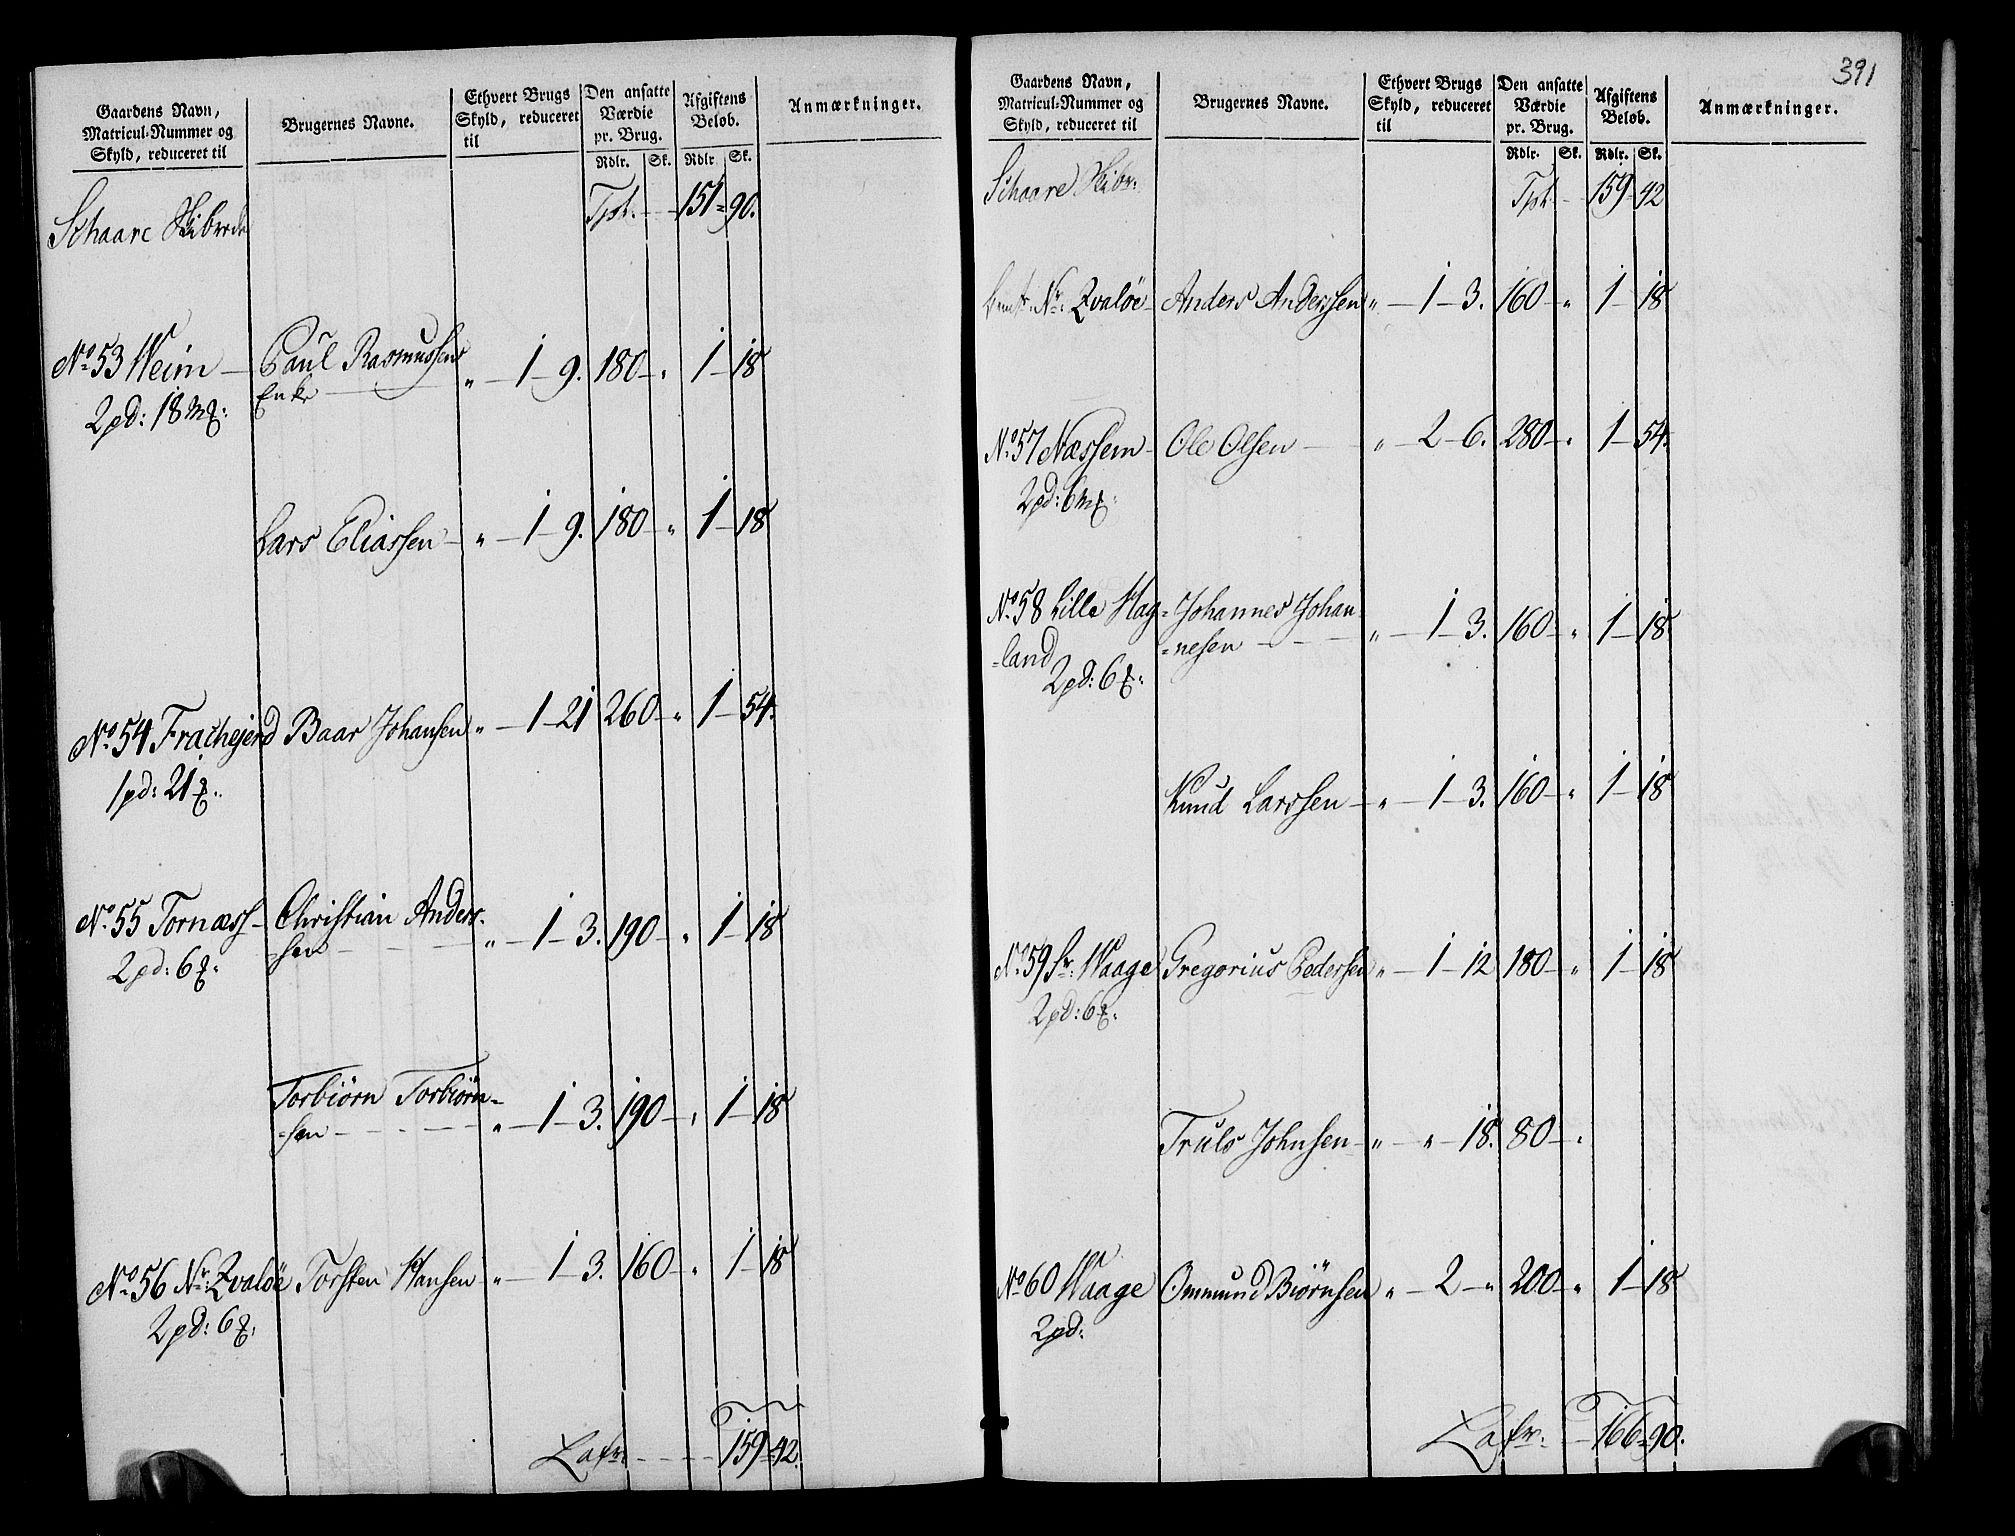 Gaardens Navn, Matricul-Nummer og Skyld, reduceret til | Brugernes Navne. | Ethvert Brugs Skyld, reduceret til | Den ansatte Værdie pr. Brug. Rdlr. Sk. | Afgiftens Beløb. Rdlr. Sk. | Anmærkninger.
Schaare Skibrede Tpst. 151 = 90.
No 53 Weim Paul Rasmussens " 1 9. 180 " 1 18
2pd: 18 mk: Enke
Lars Eliassen " 1 9. 180 " 1 18
No 54 Frachejerd Baar Johansen " 1 21 260 " 1 54.
1pd: 21
No 55 Tornæss Christian Anders- " 1 3. 190 " 1 18
2pd: 6 =sen
Torbiörn Torbiörn= " 1 3. 190 " 1 18
=sen
No 56 Nr Qvaløe Torsten Hansen " 1 3. 160 " 1 18
2pd: 6
Lafr. 159 = 42.
391
Gaardens Navn, Matricul-Nummer og Skyld, reduceret til | Brugernes Navne. | Ethvert Brugs Skyld, reduceret til | Den ansatte Værdie pr. Brug. Rdlr. Sk. | Afgiftens Beløb. Rdlr. Sk. | Anmærkninger.
Schaare Skibr: Tpst 159 42
Nr: Qvaløe Anders Anderssen " 1 3. 160 " 1 18
No 57 Næssem Ole Olsen " 2 6. 280 " 1 54.
2pd: 6 mk:
No 58 Lille Hag= Johannes Johan= " 1 3. 160 " 1 18
=land =nesen
2pd: 6
Knud Larssen " 1 3. 160 " 1 18
No 59 Sr: Waage Gregorius Pedersen " 1 12 180 " 1 18
2pd: 6
Truls Johnsen " " 18. 80 "
No 60 Waage Ommund Biörnsen " 2 " 200 " 1 18
2pd:
Lafr. 166 = 90.